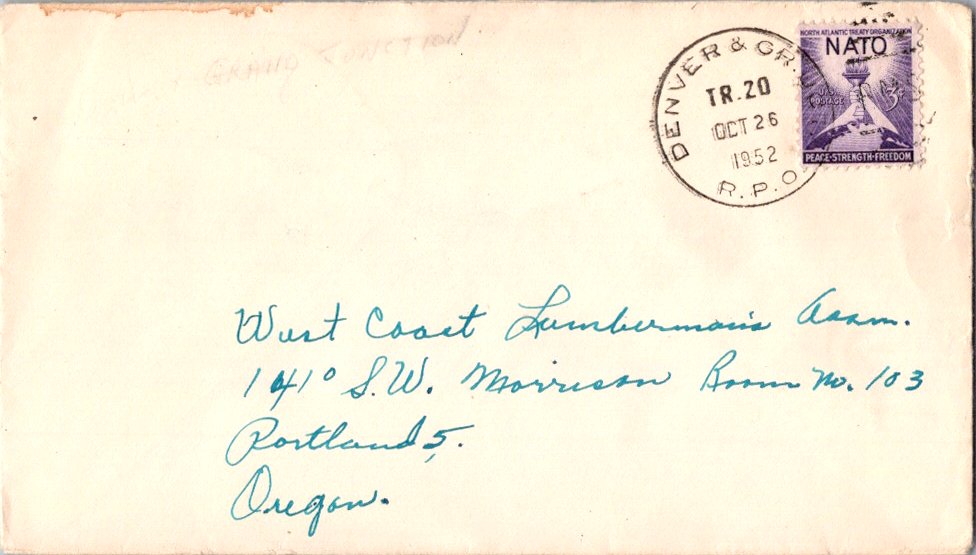 GRAND JUNCTION
DENVER & GR.
TR.20
OCT 26
1952
R.P.O.
NORTH ATLANTIC TREATY ORGANIZATION
NATO
U.S. POSTAGE
3¢
PEACE·STRENGTH·FREEDOM
West Coast Lumberman's Assm.
1410 S.W. Morrison Room No. 103
Portland 5,
Oregon.